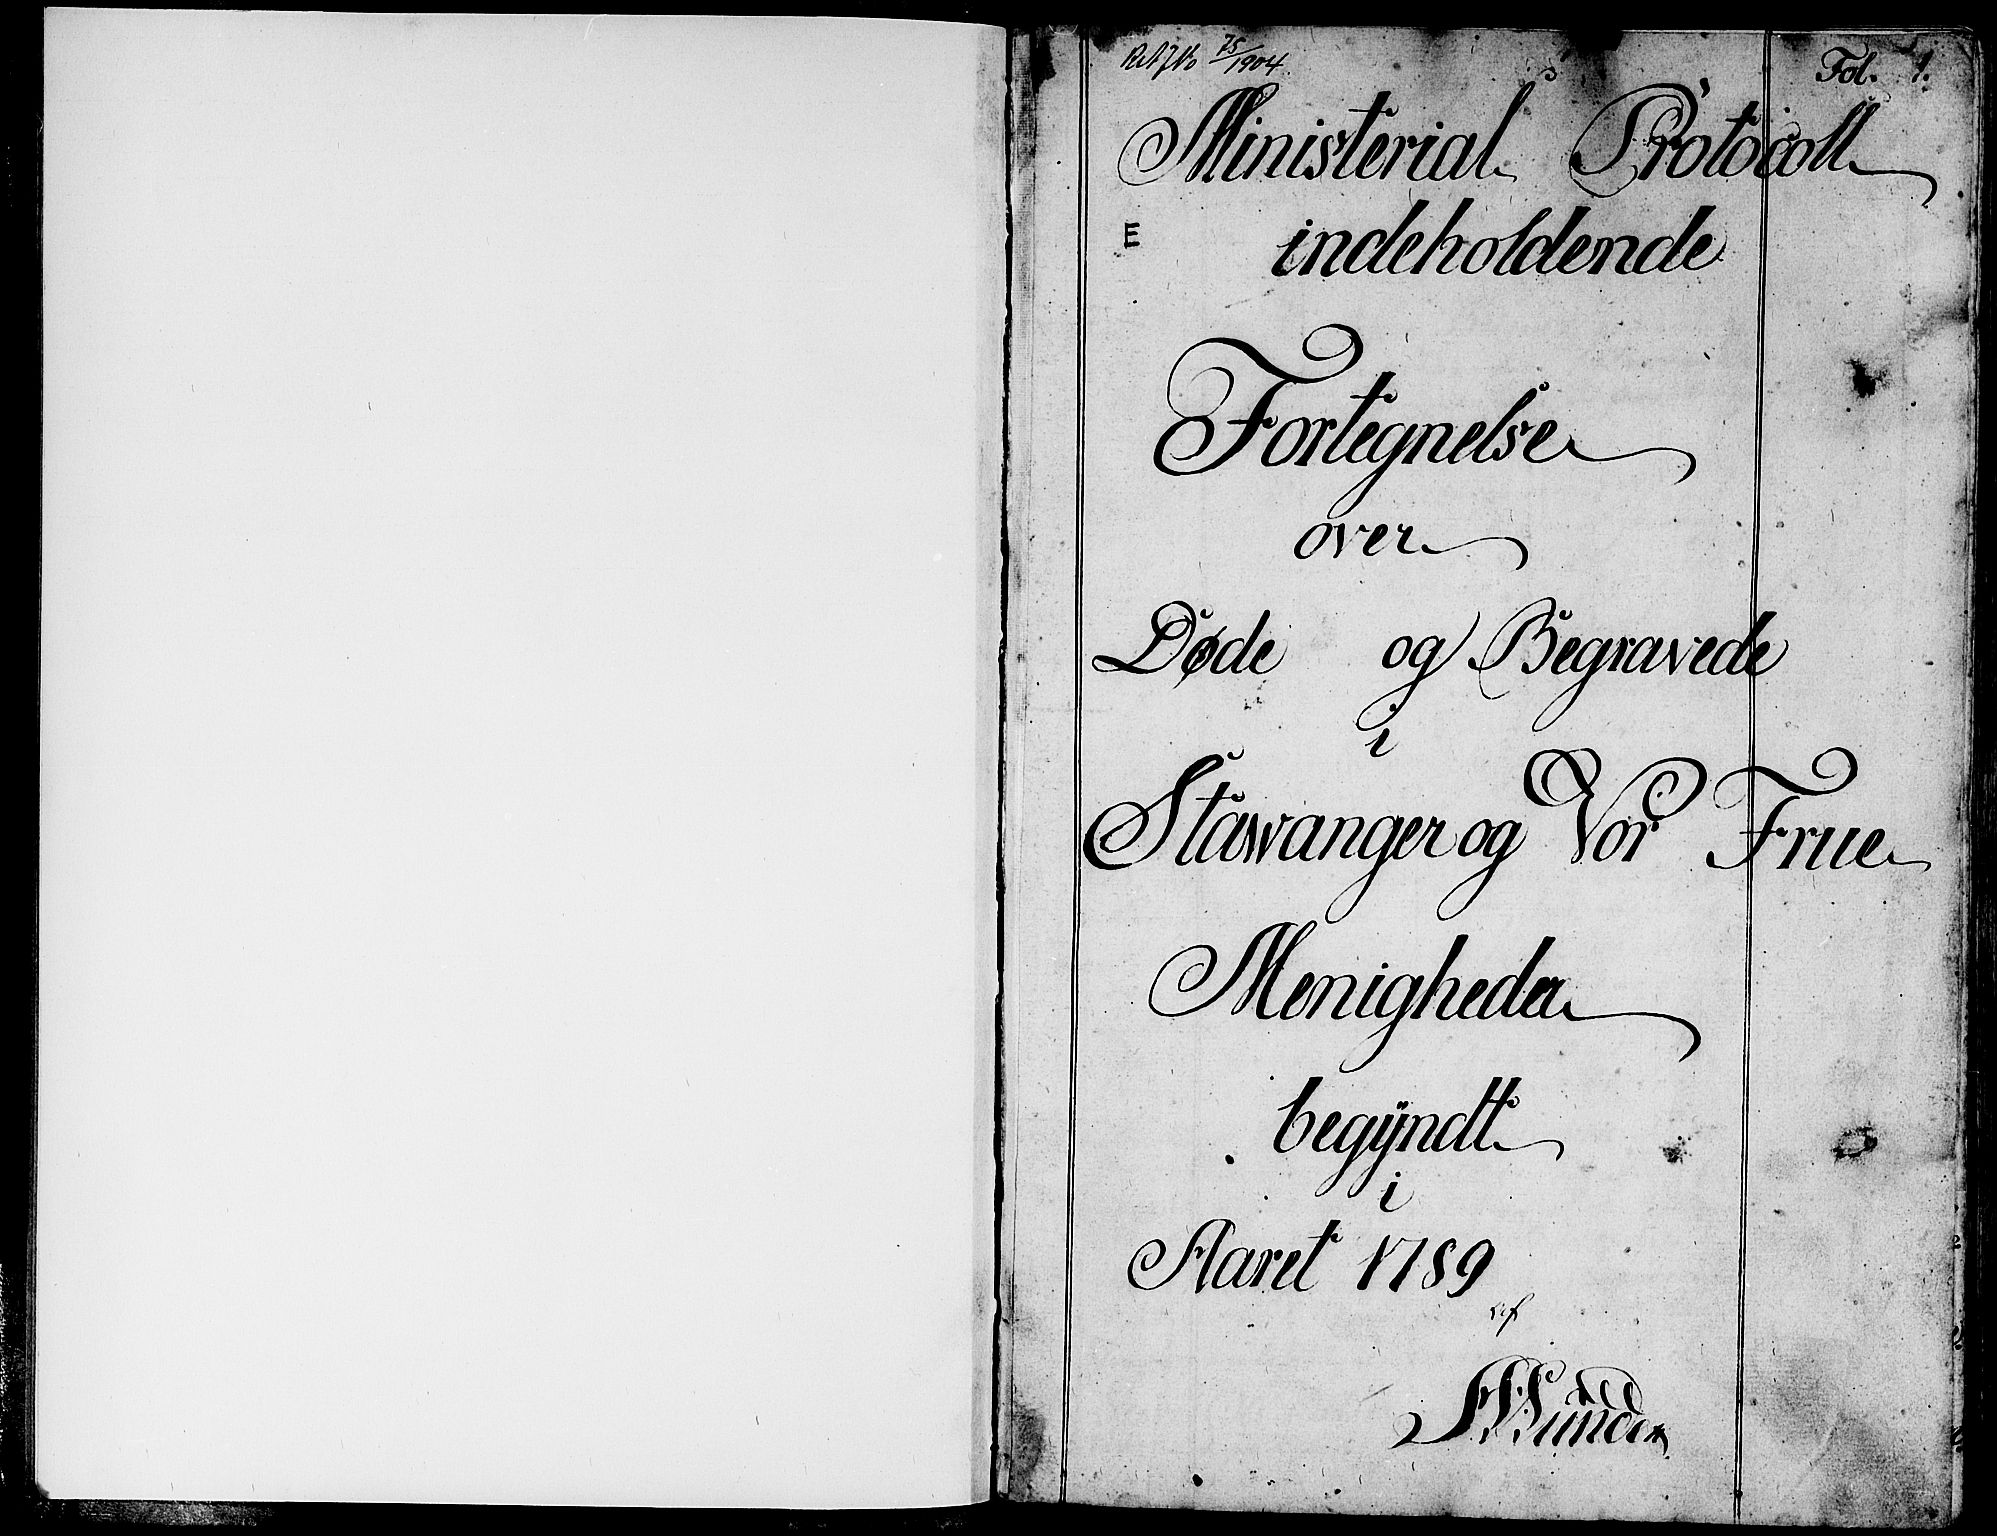 75/1904
Fol. 1.
Ministerial Protocoll
E
indeholdende
Fortegnelse
over
Døde og Begravede
i
Stawanger og Vor Frue
Menigheder
begÿndt
i
Aaret 1789
af